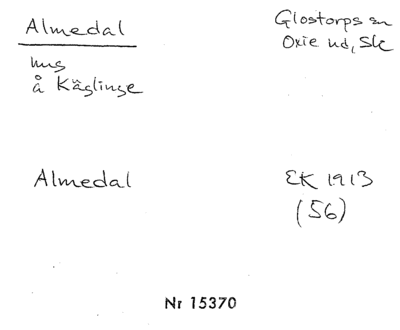 Almedal
Glostorps sn
Oxie hd, Sk
hus
å Käglinge
Almedal
EK 1913
(56)
Nr 15370